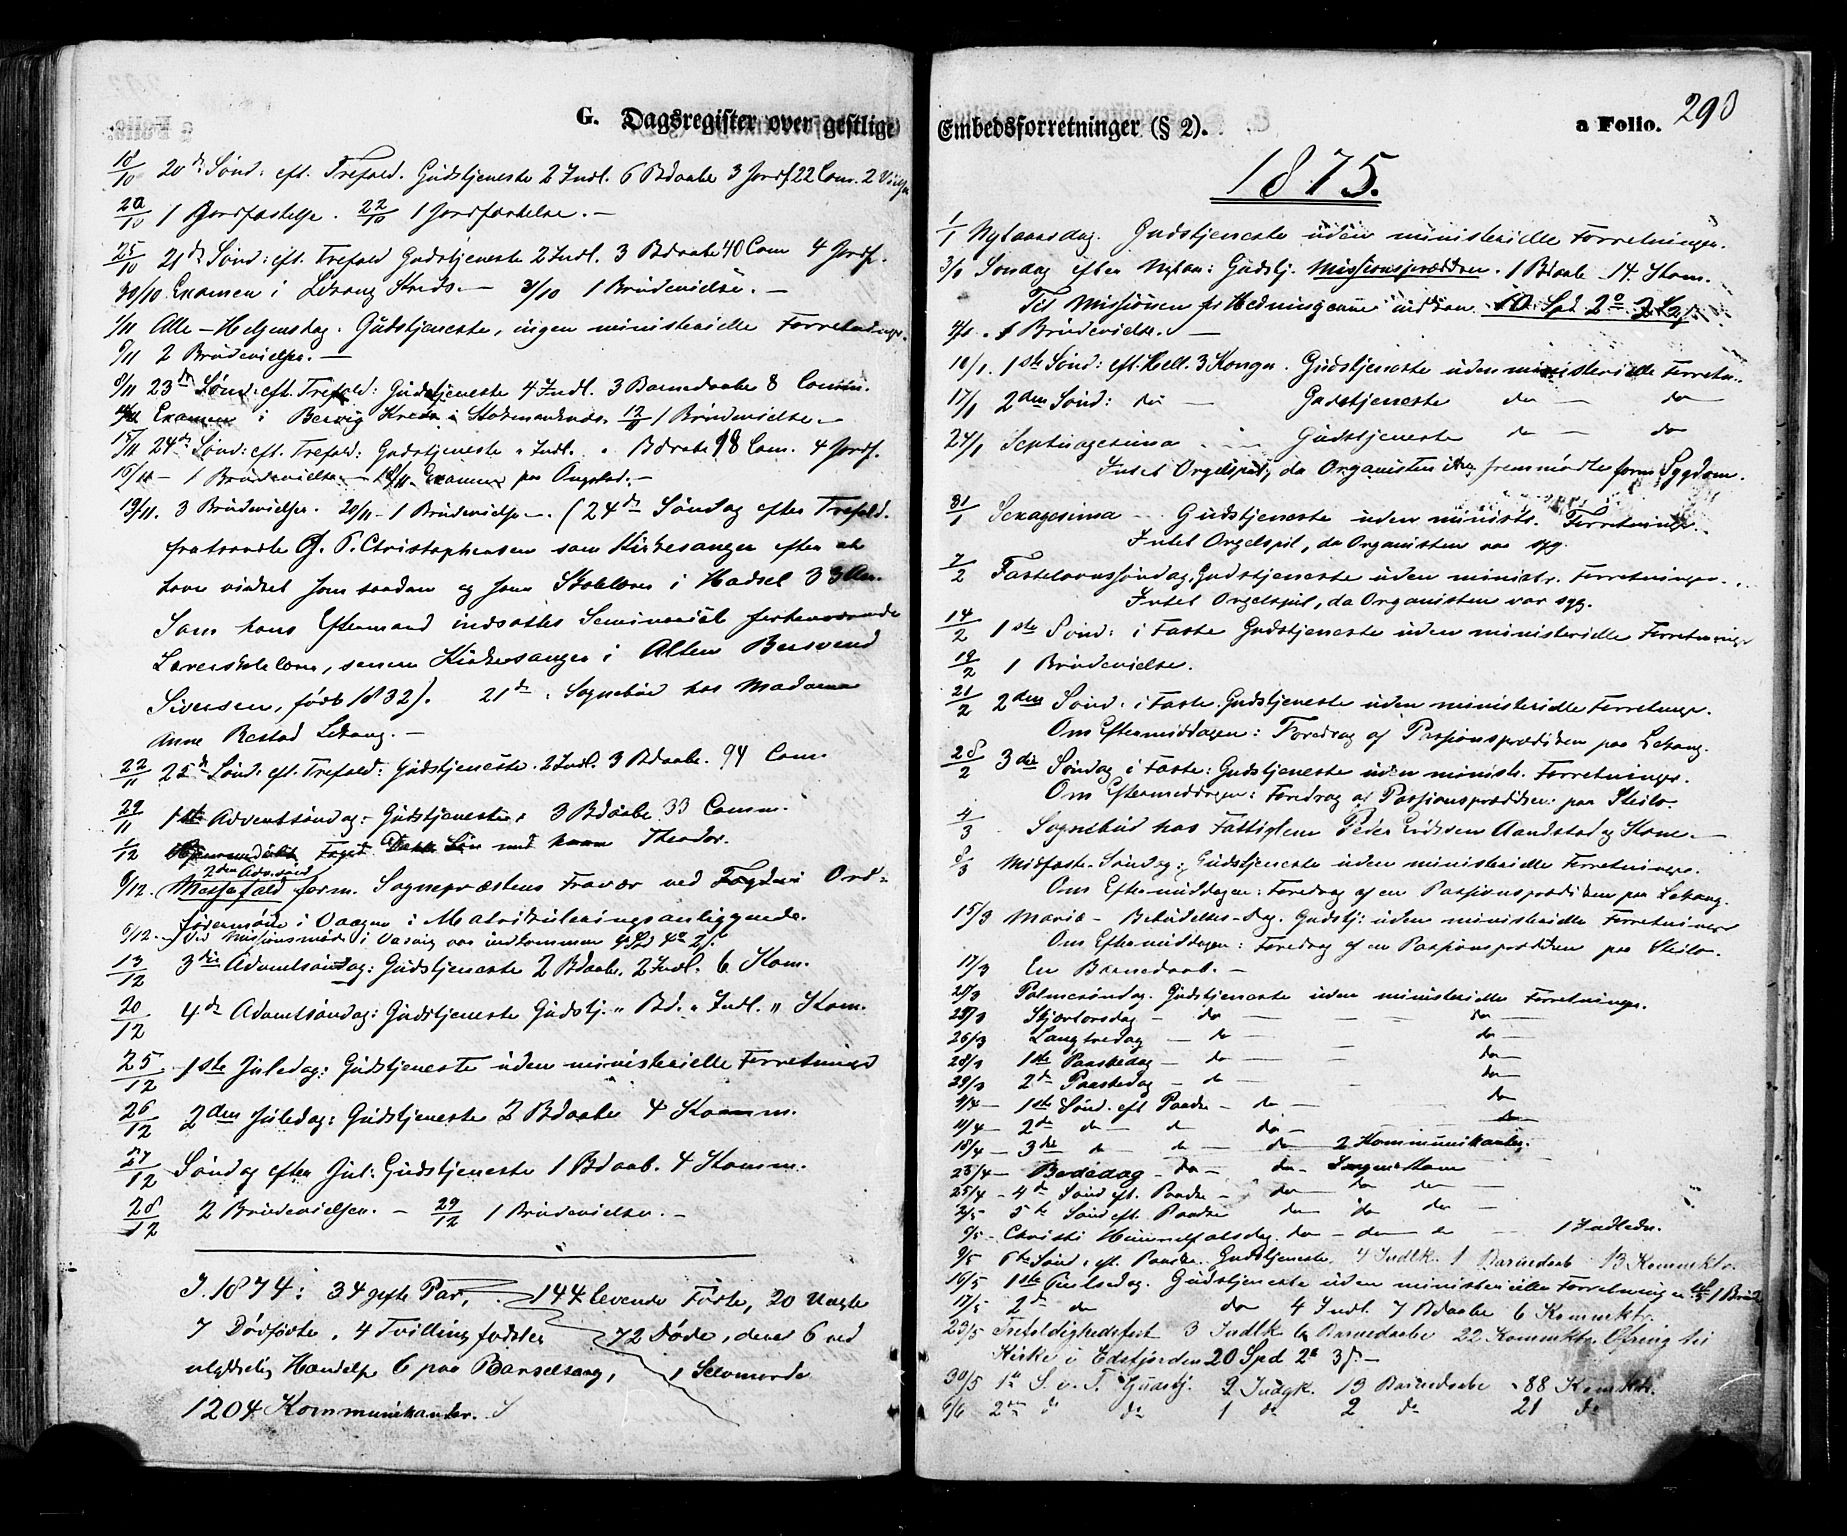 G. Dagsregister over gestlige
18/10 20de Sønd: eft. Trefold. Gudstjeneste 2 Indl. 6 Bdaabe 3 Jordf 22 Com. 2
20/10 1 Jordfæstelse. 22/10 1 Jordfæstelse. —
25/10 21de Sønd: eft. Trefold Gudstjeneste 2 Indl. 3 Bdaabe 40 Com 4 Jordf.
30/10 Examen i Lekang Kreds. — 1 Brudevielse. —
1/11 Alle-Helgensdag. Gudstjeneste, ingen ministerielle Forretninger.
6/11 2 Brudevielser. —
8/11 23de Sønd: eft. Trefold: Gudstjeneste 4 Indl. 3 Barnedaabe 8 Comm.
Examen i Kreds Stokmarknæs. 12/11 1 Brudevielse —
15/11 24de Sønd: eft. Trefold: Gudstjeneste " Indl. " Bdaabe 98 Com. 4 Jordf.
1 Brudevielse — 18/11 Examen paa
19/11. 3 Brudevielser. 20/11 — 1 Brudevielse —. (24de Søndag efter Trefold.
fratraadte O. P. Christophersen som Kirkesanger efter at
have virket som saadan og som Skolelærer i Hadsel 33 Aar.
Som hans Eftermand indsattes Seminarist forhenværende
Lærerskolelærer, senere Kirkesanger i Alten Bersvend
Sivertsen, født 1832). 21de Sognebud hos Madame
Anne Restad Lekang. —
22/11 25de Sønd. eft. Trefold: Gudstjeneste. 2 Indl. 3 Bdaabe. 94 Com.
29/11 1ste Adventsøndag: Gudstjeneste, 3 Bdaabe 33 Comm.
/12 Hjemmedøbt Foged Søn med Navn Theodor.
2den Adv. sønd
6/12. Messefald form. Sognepræstens Fravær ved Fogden i Ord-
førermøde i Vaagen i Matrikuleringsanliggende.
6/12. Ved Missionsmøde i var indkommen
13/12 3die Adventsøndag: Gudstjeneste 2 Bdaabe. 2 Indl. 6 Kom.
20/12 4de Adventsøndag: Gudstjeneste Gudstj. " Bd. " Indl. " Kom.
25/12 1ste Juledag: Gudstjeneste uden ministerielle Forretninger
26/12 2den Juledag: Gudstjeneste 2 Bdaabe 4 Komm.
27/12 Søndag efter Jul: Gudstjeneste 1 Bdaab. 4 Komm.
28/12 2 Brudevielser. — 29/12 1 Brudevielse. —
I 1874: 34 gifte Par, 144 levende Fødte, 20 Uægte
7 Dødfødte, 4 Tvillingfødsler 72 Døde, deraf 6 ved
ulykkelig Hændelse 6 paa Barselseng, 1 Selvmorder
1204 Kommunikanter.
Embedsforretninger (§ 2). a Folio. 293
1875.
1/1 Nytaarsdag. Gudstjeneste uden ministerielle Forretninger.
3/1 Søndag efter Nytaar: Gudstj. Missionsprædiken. 1 Bdaab 14 Kom.
Til Missionen for Hedningerne indkom 10 Spd
1 Brudevielse. —
10/1. 1ste Sønd: eft. Hell. 3 Konger. Gudstjeneste uden ministerielle Forretn.
17/1 2den Sønd: do — Gudstjeneste do — do
24/1 Septuagesima Gudstjeneste do — do
Intet Orgelspil, da Organisten ikke fremmødte form. Sygdom.
31/1 Sexagesima — Gudstjeneste uden ministr. Forretninger.
Intet Orgelspil, da Organisten var syg.
7/2 Fastelavnssøndag, Gudstjeneste uden ministr. Forretninger.
Intet Orgelspil, da Organisten var syg.
14/2 1ste Sønd: i Faste Gudstjeneste uden ministerielle Forretninger
19/2 1 Brudevielse.
21/2 2den Sønd: i Faste. Gudstjeneste uden ministerielle Forretninger.
Om Eftermiddagen: Foredrag af Passionsprædiken paa Lekang.
28/2 3die Søndag i Faste: Gudstjeneste uden ministr. Forretninger.
Om Eftermiddagen: Foredrag af Passionsprædiken: paa Steilo.
4/3 Sognebud hos Fattiglem Peder Eriksen Aandstad og Kone. —
/3 Midfaste-Søndag: Gudstjeneste uden ministerielle Forretninger.
Om Eftermiddagen: Foredrag af en Passionsprædiken paa Lekang.
15/3 Mariæ-Bebudelses-dag. Gudstj: uden ministerielle Forretninger
Om Eftermiddagen: Foredrag af en Passionsprædiken paa Steilo.
17/3 En Barnedaab. —
Palmesøndag. Gudstjeneste uden ministerielle Forretninger.
Skjærtorsdag — do — — do
26/3 Langfredag — do — — do
28/3 1ste Paaskedag — do — — do
29/3 2de Paaskedag — do — — do
4/4 — 1ste Sønd. eft Paaske — do — do
11/4 — 2de do do do — do
18/4 — 3die do do — do 2 Kommunikanter.
23/4 — Bededag — do — do — Ingen Kom
25/4 — 4de Sønd eft. Paaske — do do do —
2/5 5te Sønd eft. Paaske do do do —
6/5 — Christi Himmelfartsdag. do — do — 1 Indledn.
9/5 6te Sønd. eft. Paaske. Gudstjeneste. 4 Indlk. 1 Barnedaab 13 Kommkt.
16/5 1ste Pintsedag. Gudstjeneste uden ministerielle Forretninger 1 Brud
17/5 2de do do 4 Indl. 7 Bdaabe 6 Kommktr.
23/5 Trefoldighedsfest 3 Indlk 6 Barnedaabe 22 Kommktr. Ofring til
Kirke i Eidsfjorden 20 Spd
30/5 1ste S. e. T. Gudstj. 2 Indgk. 13 Barnedaabe 88 Kommktr.
6/6 2den do do 1 do 2 do 21 do